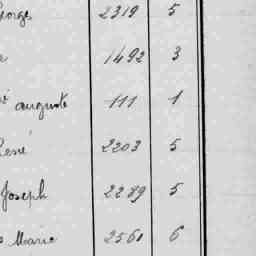 Georges 2319 5
e 1492 3
auguste 111 1
René 2203 5
Joseph 2289 5
Marie 2561 6